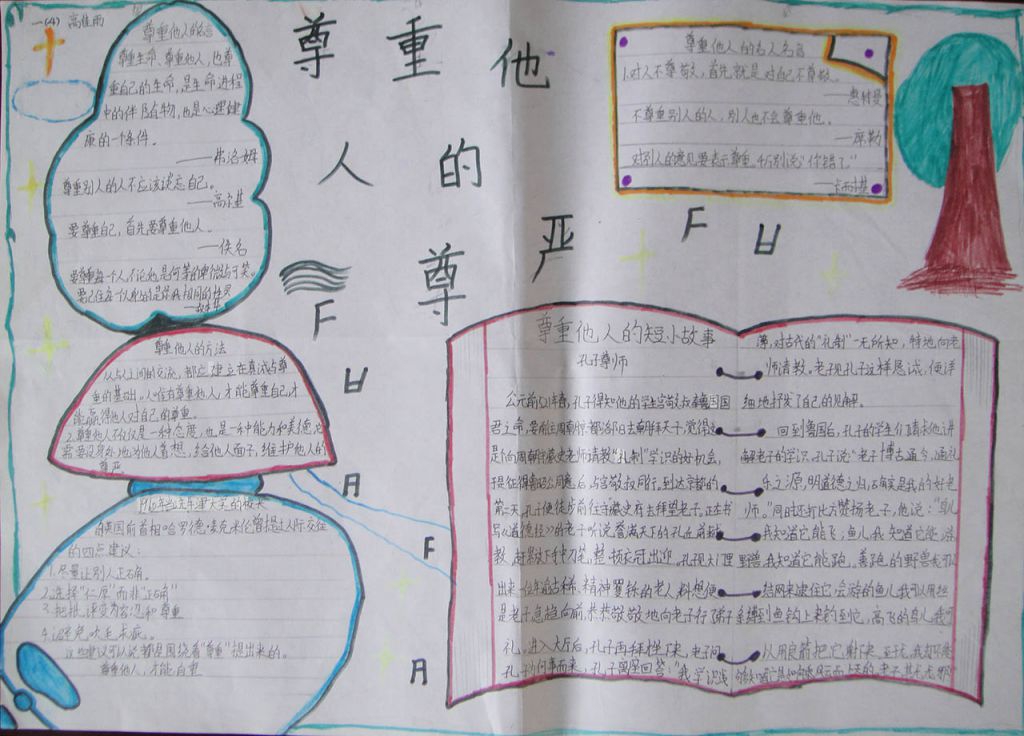 一(4) 高佳雨
尊重他人的尊严
尊重他人的名言
尊重生命、尊重他人,也尊
重自己的生命,是生命进程
中的伴随物,也是心理健
康的一个条件。
——弗洛姆
尊重别人的人不应该谈忘自己。
——高尔基
要尊重自己,首先要尊重他人。
——佚名
尊重他人的名人名言
1.对人不尊敬,首先就是对自己不尊敬。
——惠特曼
不尊重别人的人,别人也不会尊重他。
——席勒
对别人的意见要表示尊重,千万别说“你错了”
——卡耐基
尊重他人的方法
人与人之间的交流,都应建立在真诚与尊
重的基础。人唯有尊重他人,才能尊重自己,才
能赢得他人对自己的尊重。
2.尊重他人不仅仅是一种态度,也是一种能力和美德,它
需要设身处地为他人着想,给他人面子,维护他人的
尊严
的四点建议:
1.尽量让别人正确。
2.选择“仁厚”而非“正确”
3.把批评变为容忍和尊重
4.避免吹毛求疵。
这些建议可以说都是围绕着“尊重”提出来的。
尊重他人,才能自重
尊重他人的短小故事
孔子尊师
公元前521年春,孔子得知他的学生宫敬叔奉鲁国国
君之命,要前往周朝京都洛阳去朝拜天子,觉得这
是个向周朝守藏史老师请教“礼制”学识的好机会,
于是征得鲁昭公同意后,与宫敬叔同行,到达京都的
第二天,孔子便徒步前往守藏史府去拜望老子,正在书
写《道德经》的老子听说誉满天下的孔丘前来求
教,赶紧放下手中刀笔,整顿衣冠出迎,孔子见大门里
出来一位年逾古稀、精神矍铄的老人,料想便
是老子,急趋向前,恭恭敬敬地向老子行了弟子
礼,进入大厅后,孔子再拜才坐下来,老子问
孔子为何事而来,孔子离座回答:“我学识浅
薄,对古代的“礼制”一无所知,特地向老
师请教。老子见孔子这样恳诚,便详
细地抒发了自己的见解。
回到鲁国后,孔子的学生们请求他讲
解老子的学识,孔子说“老子博古通今,通礼
乐之源,明道德之归,确实是我的好老
师。”同时还打比方赞扬老子,他说:“鸟儿
我知道它能飞;鱼儿,我知道它能游
野兽,我知道它能跑,善跑的野兽我可
结网来逮住它,会游的鱼儿我可以用丝
条缚到鱼钩上来钓到它,高飞的鸟儿我可
以用良箭把它射下来,至于龙,我却不